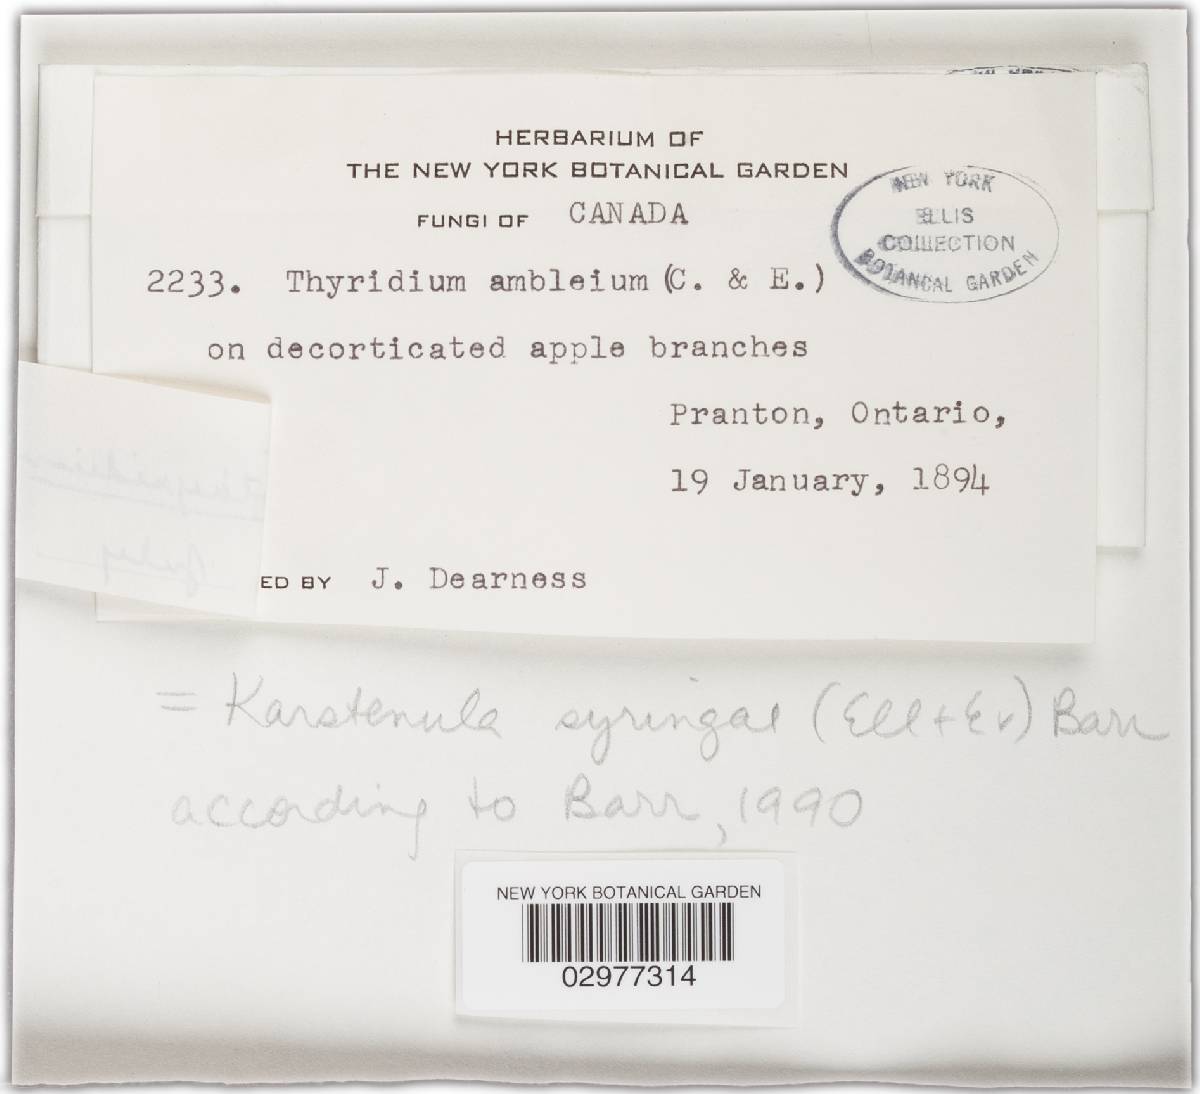 HERBARIUM OF
THE NEW YORK BOTANICAL GARDEN
FUNGI OF CANADA
NEW YORK
ELLIS
COLLECTION
BOTANCAL GARDEN
2233. Thyridium ambleium (C. & E.)
on decorticated apple branches
Pranton, Ontario,
19 January, 1894
ED BY J. Dearness
= Karstenula syringae (Ell + Ev) Barr
according to Barr, 1990
NEW YORK BOTANICAL GARDEN
02977314